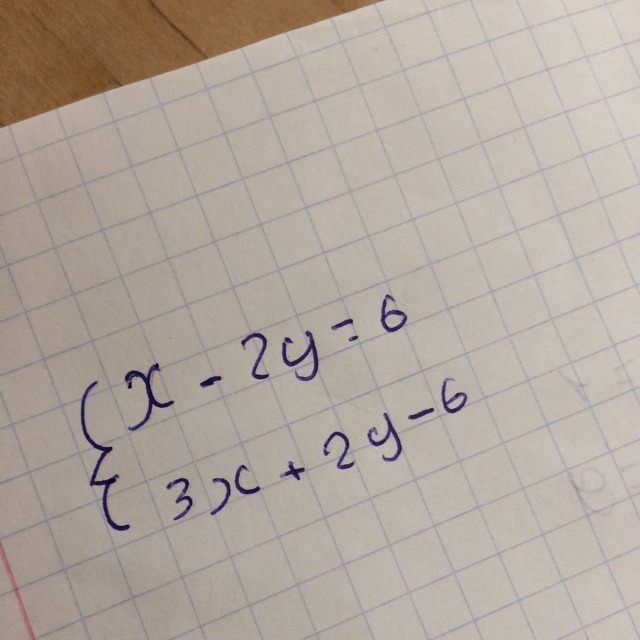 { x - 2y = 6
3x + 2y - 6